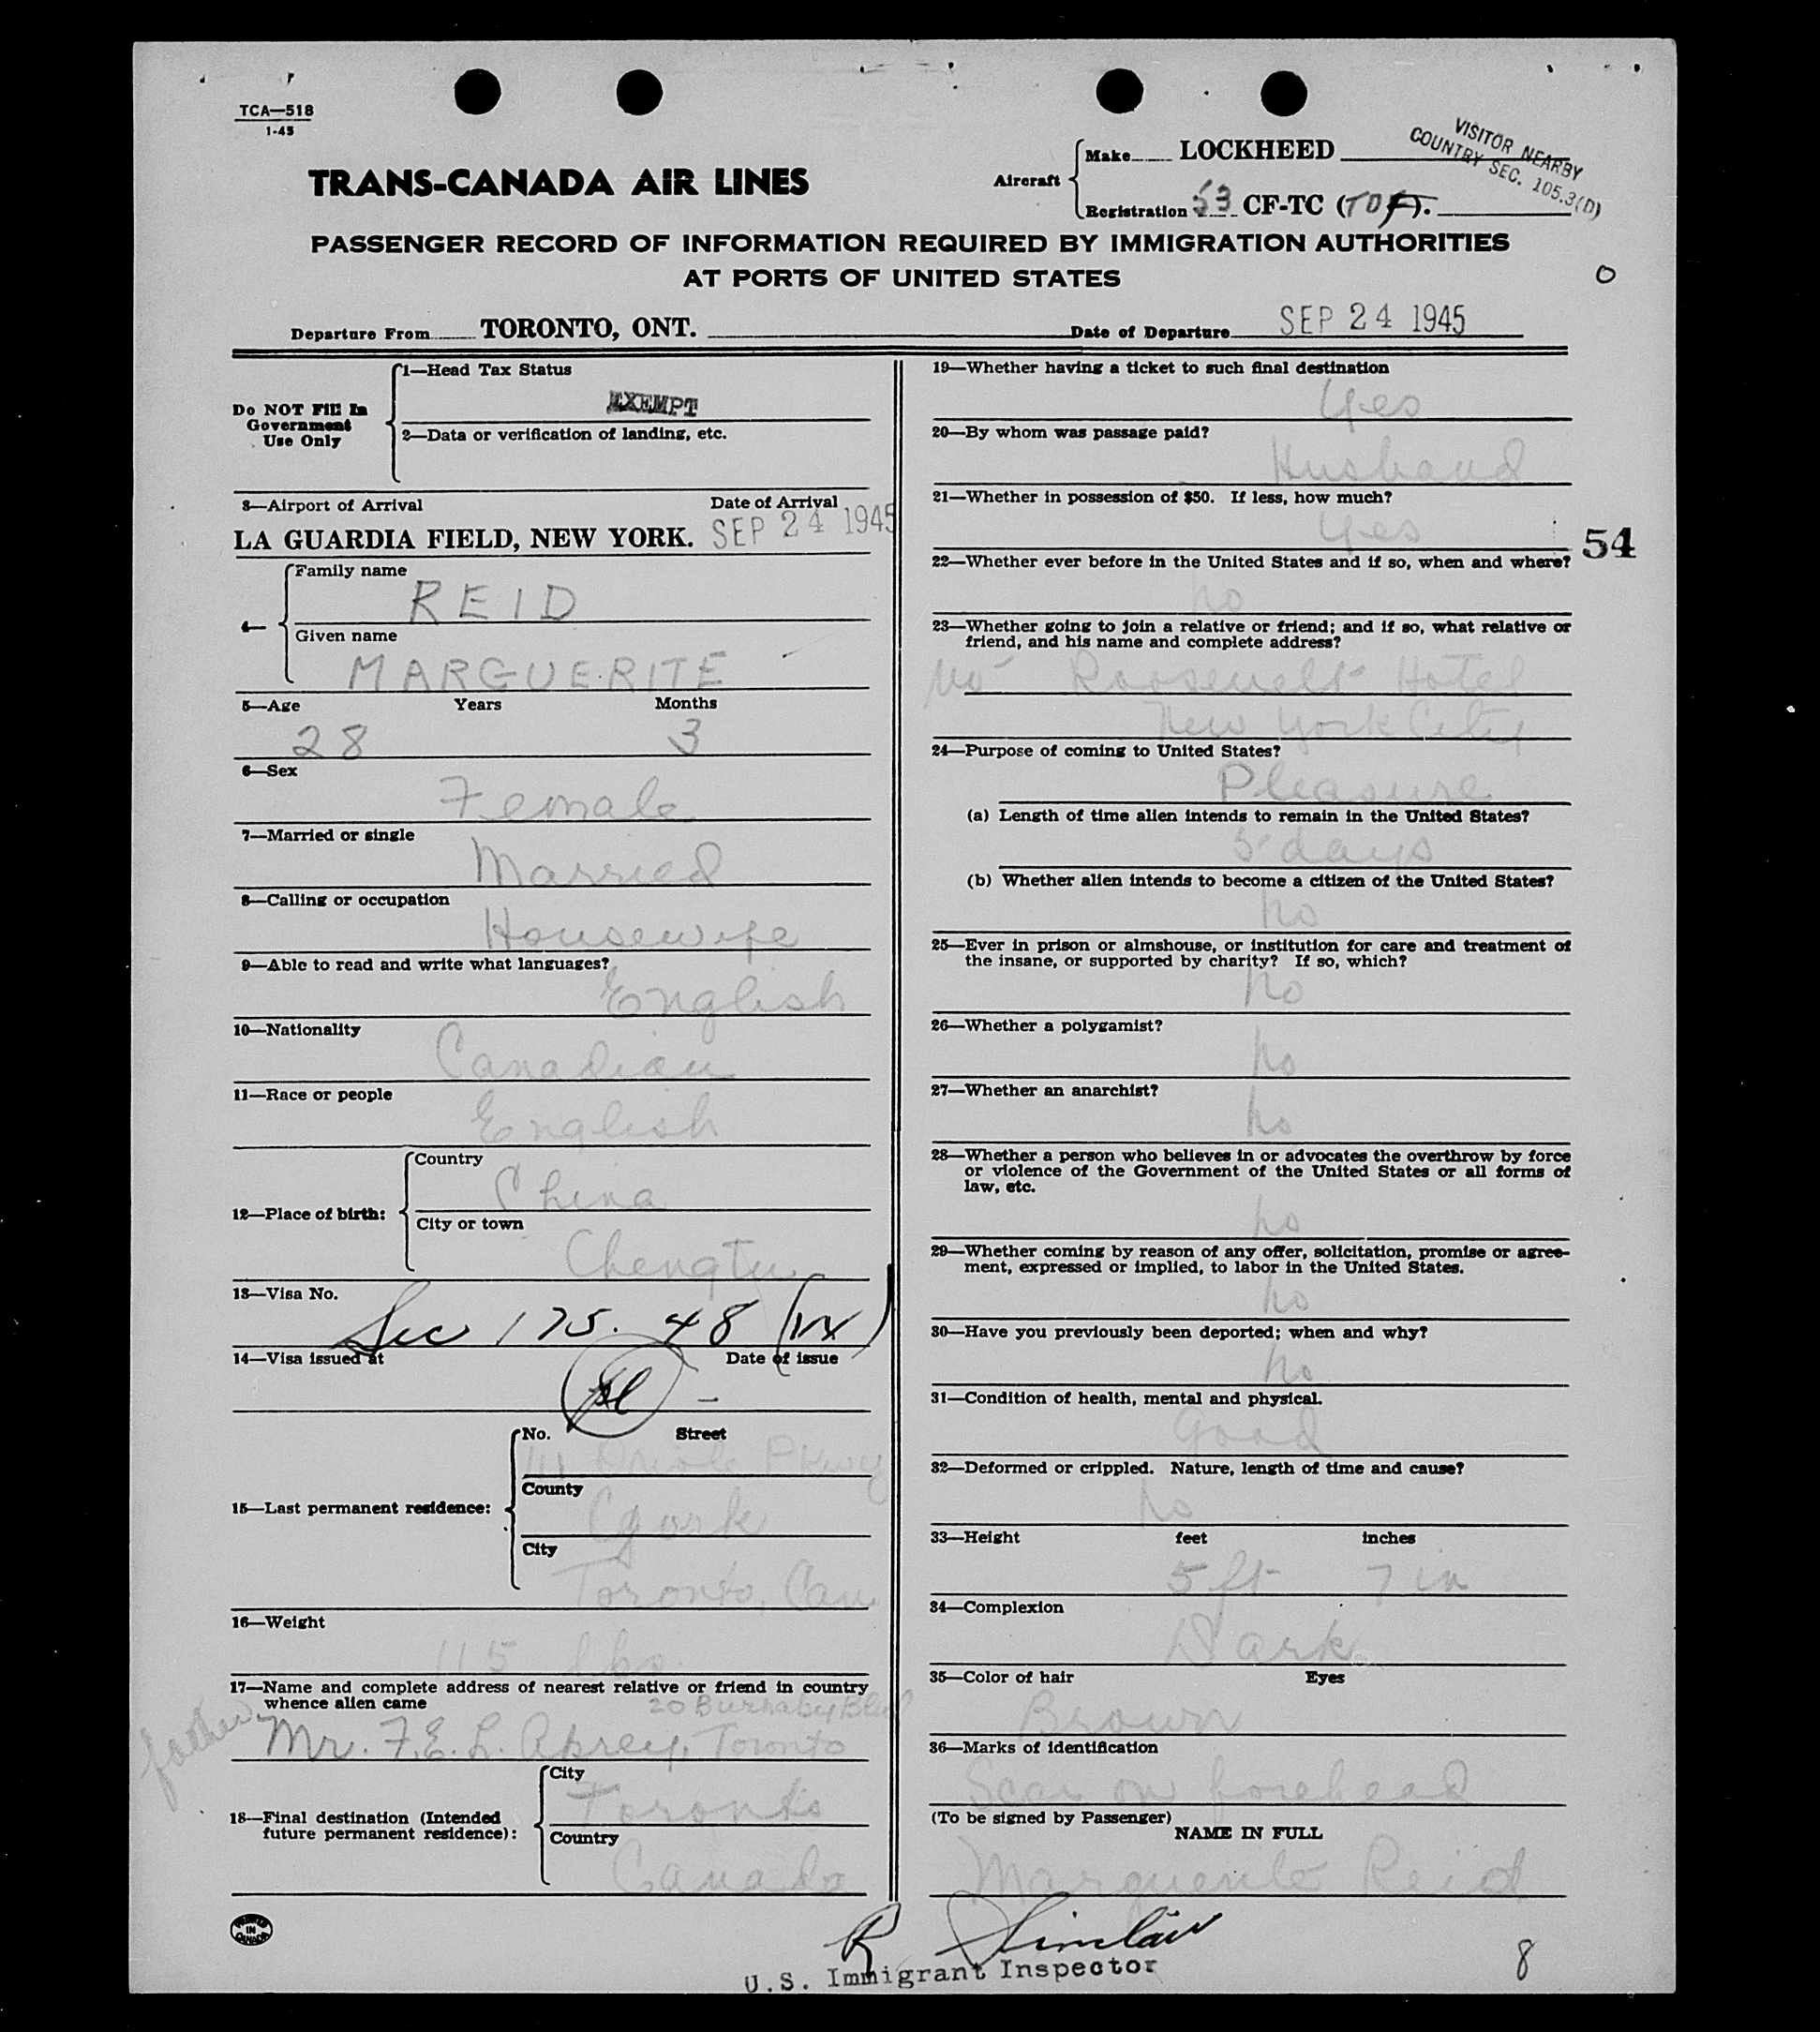 TCA—518
1-45
VISITOR NEARBY
COUNTRY SEC. 105.3(D)
TRANS-CANADA AIR LINES
Aircraft
Make LOCKHEED
Registration 53 CF-TC (TOF).
PASSENGER RECORD OF INFORMATION REQUIRED BY IMMIGRATION AUTHORITIES
AT PORTS OF UNITED STATES
Departure From TORONTO, ONT. Date of Departure SEP 24 1945
Do NOT Fill In
Government
Use Only
1—Head Tax Status
EXEMPT
2—Data or verification of landing, etc.
3—Airport of Arrival Date of Arrival
LA GUARDIA FIELD, NEW YORK. SEP 24 1945
4—
Family name
REID
Given name
MARGUERITE
5—Age Years Months
28 3
6—Sex
Female
7—Married or single
Married
8—Calling or occupation
Housewife
9—Able to read and write what languages?
English
10—Nationality
Canadian
11—Race or people
English
12—Place of birth:
Country
China
City or town
Chengtu
13—Visa No.
Sec 175.48
14—Visa issued at Date of issue
—
15—Last permanent residence:
No. Street
111 Oriole Pkwy
County
York
City
Toronto, Can
16—Weight
115 lbs.
17—Name and complete address of nearest relative or friend in country
whence alien came
20 Burnaby Blvd
father
Mr. F. E. L. Toronto
18—Final destination (Intended
future permanent residence):
City
Toronto
Country
Canada
PRINTED
IN
CANADA
19—Whether having a ticket to such final destination
Yes
20—By whom was passage paid?
Husband
21—Whether in possession of $50. If less, how much?
Yes
54
22—Whether ever before in the United States and if so, when and where?
no
23—Whether going to join a relative or friend; and if so, what relative or
friend, and his name and complete address?
No Roosevelt Hotel
New York City
24—Purpose of coming to United States?
Pleasure
(a) Length of time alien intends to remain in the United States?
5 days
(b) Whether alien intends to become a citizen of the United States?
no
25—Ever in prison or almshouse, or institution for care and treatment of
the insane, or supported by charity? If so, which?
no
26—Whether a polygamist?
no
27—Whether an anarchist?
no
28—Whether a person who believes in or advocates the overthrow by force
or violence of the Government of the United States or all forms of
law, etc.
no
29—Whether coming by reason of any offer, solicitation, promise or agree-
ment, expressed or implied, to labor in the United States.
no
30—Have you previously been deported; when and why?
no
31—Condition of health, mental and physical.
Good
32—Deformed or crippled. Nature, length of time and cause?
no
33—Height feet inches
5 ft 7 in
34—Complexion
Dark
35—Color of hair Eyes
Brown
36—Marks of identification
Scar on forehead
(To be signed by Passenger)
NAME IN FULL
Marguerite Reid
R Sinclair
U.S. Immigrant Inspector
8